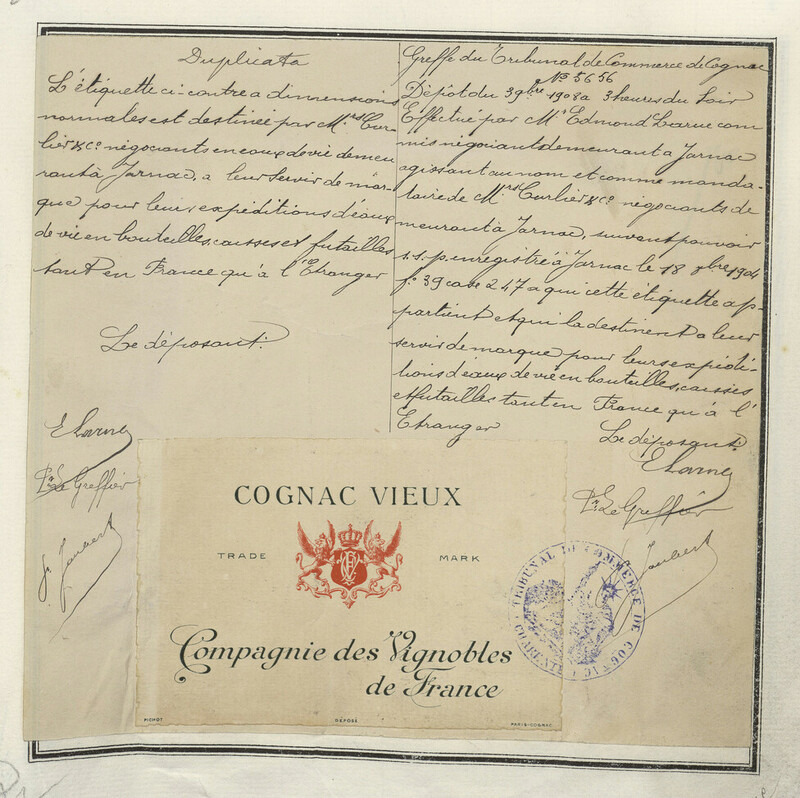 Duplicata
L'étiquette ci-contre a dimensions
normales est destinée par Mrs Cur-
lier & Co négociants en eaux de vie demeu
rant à Jarnac, a leur servir de mar-
que pour leur expéditions d'eaux
de vie en bouteilles, caisses et futailles
tant en France qu'à l'Etranger
Le déposant.
E Larue
Pr Le Greffier
Joubert
Greffe du Tribunal de Commerce de Cognac
No 5656
Dépot du 3 9bre 1908 a 3 heures du Soir
Effectué par Mr Edmond Larue com
mis négociant demeurant a Jarnac
agissant au nom et comme manda-
taire de Mrs Curlier & Co négociants de
meurant à Jarnac, suivant pouvoir
s.s.p. enregistré à Jarnac le 18 1904
fo 39 case 247 a qui cette étiquette ap-
partient et qui la destinent a leur
servir de marque pour leurs expédi-
tions d'eaux de vie en bouteilles, caisses
et futailles tant en France qu'à l'
Etranger
Le déposant.
E Larue
Pr Le Greffier
Joubert
COGNAC VIEUX
TRADE MARK
Compagnie des Vignobles
de France
PICHOT DÉPOSÉ PARIS-COGNAC
TRIBUNAL DE COMMERCE DE COGNAC (CHARENTE)